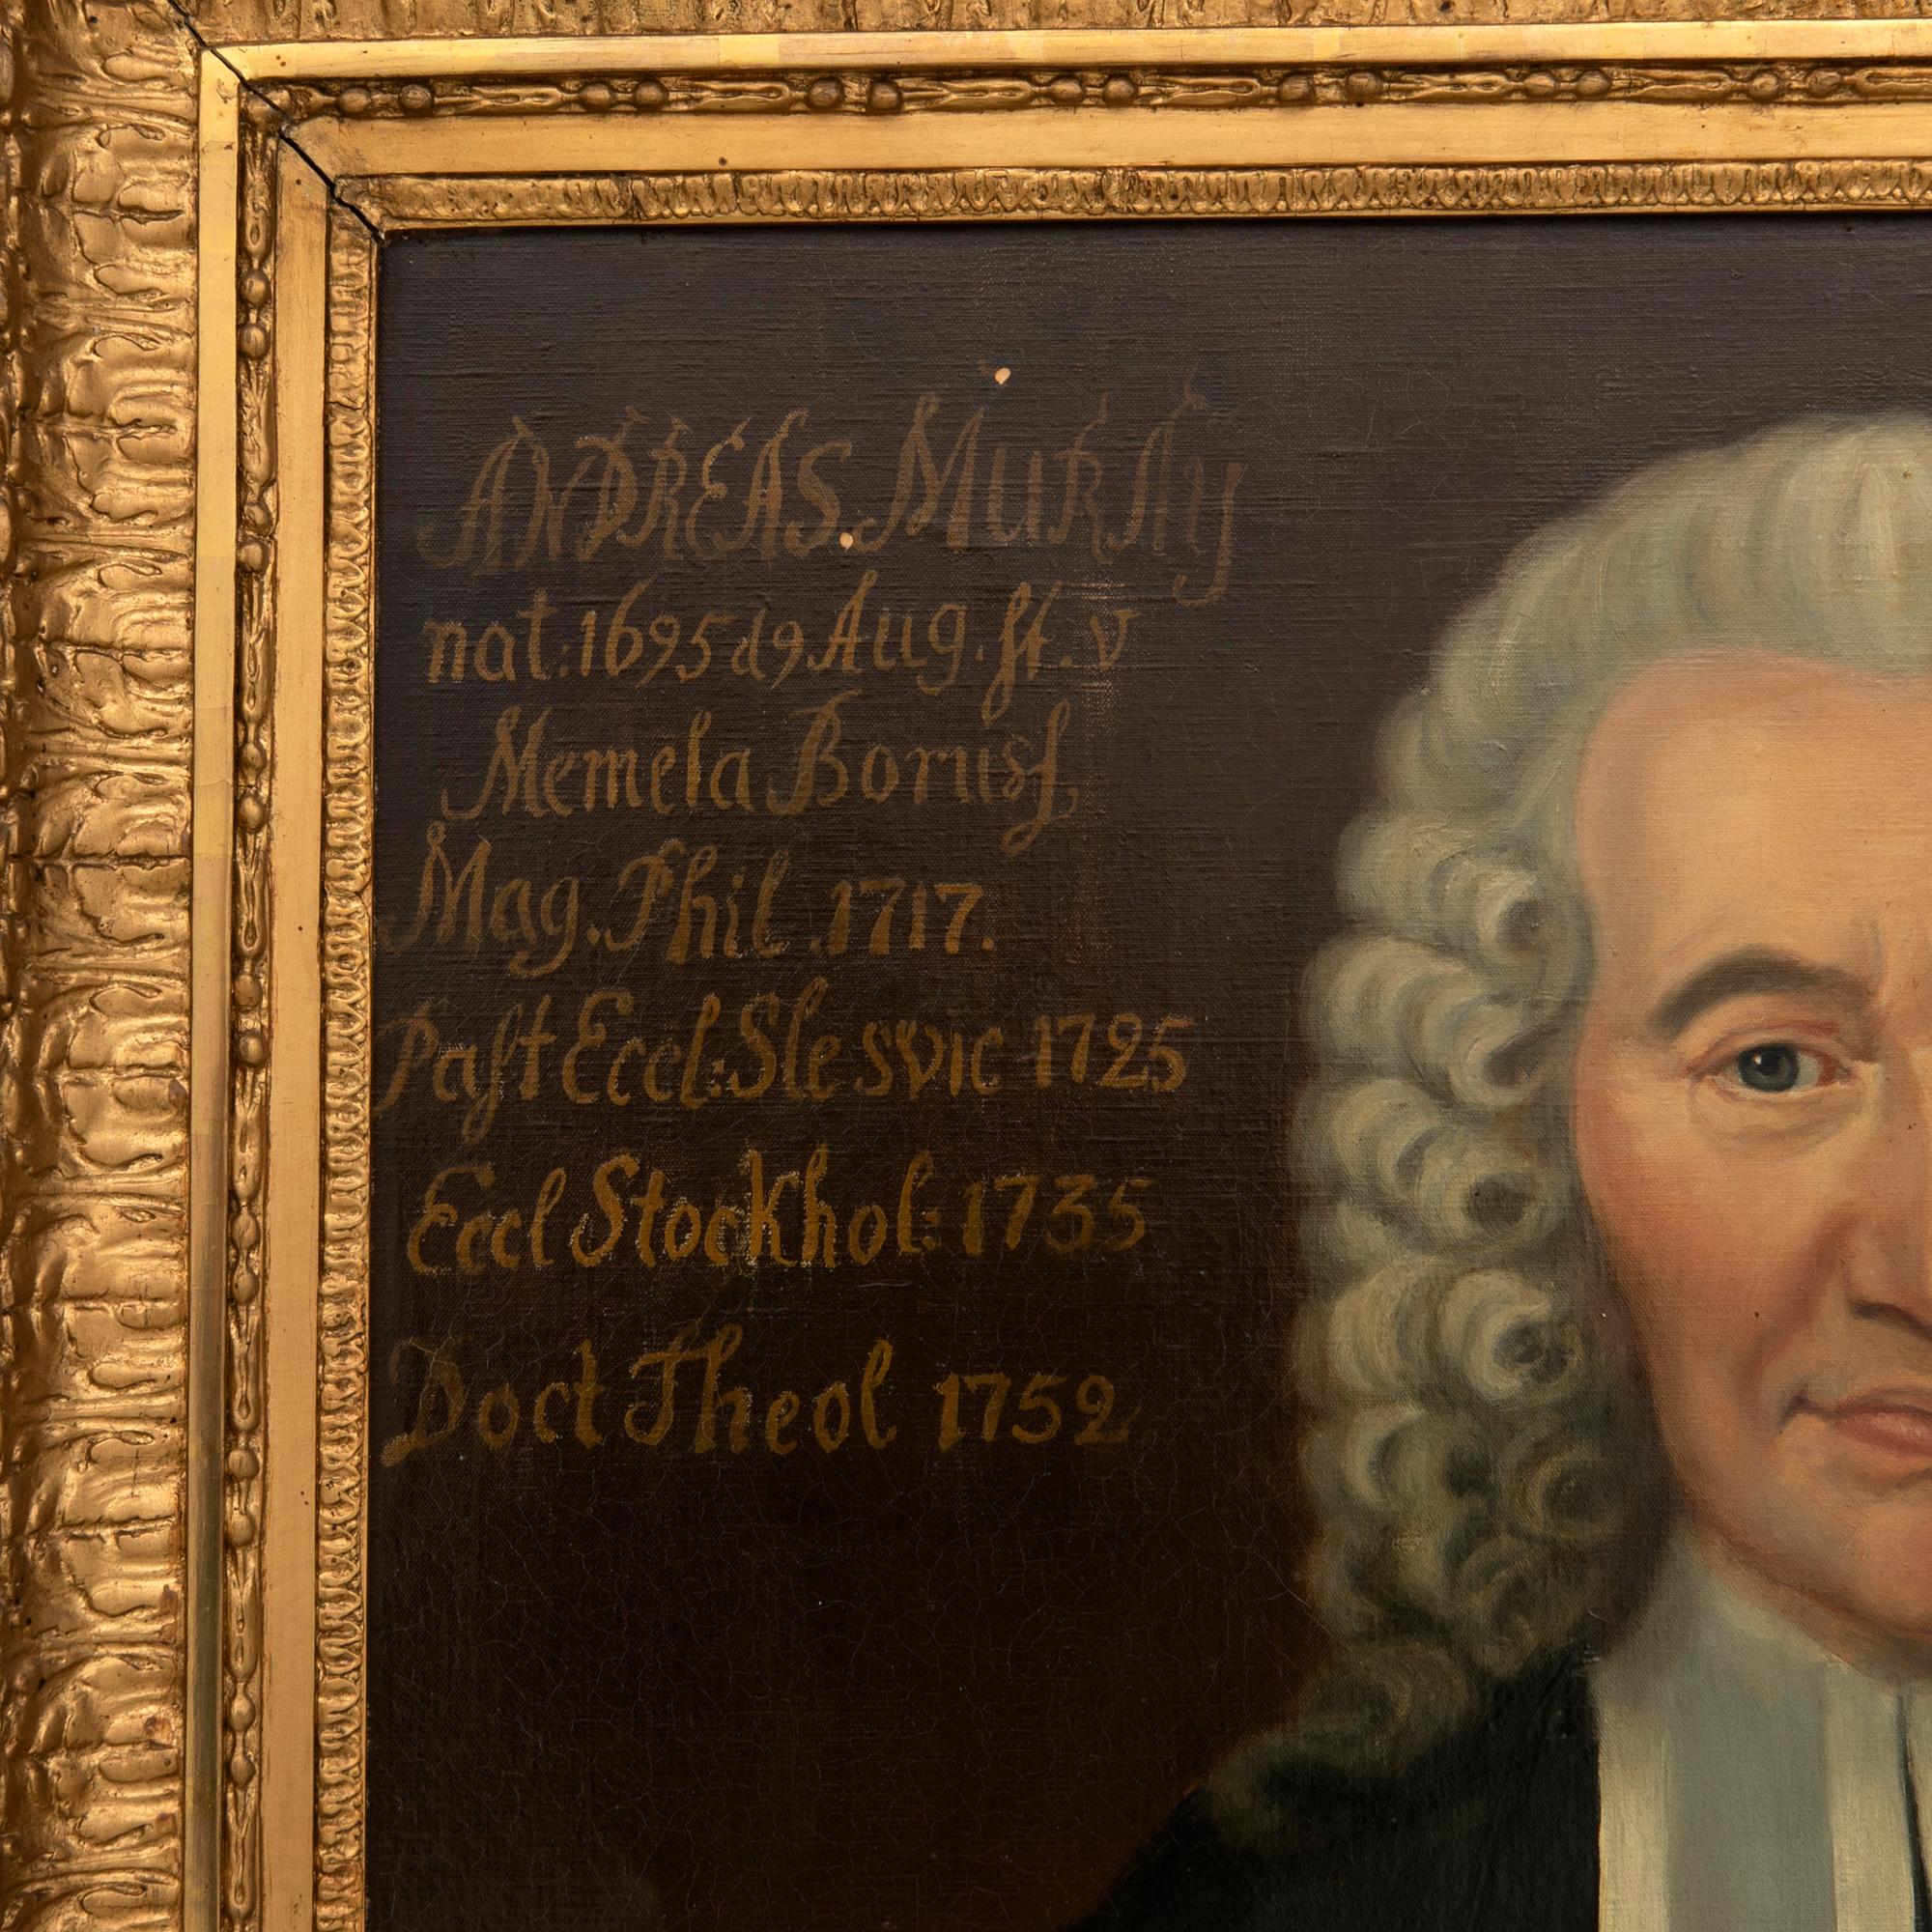 ANDREAS. MURAy
nat: 1695 d 9 Aug. st. v
Memela Boruss,
Mag. Phil. 1717.
Past Eccl: Slesvic 1725
Eccl Stockhol: 1735
Doct Theol 1752